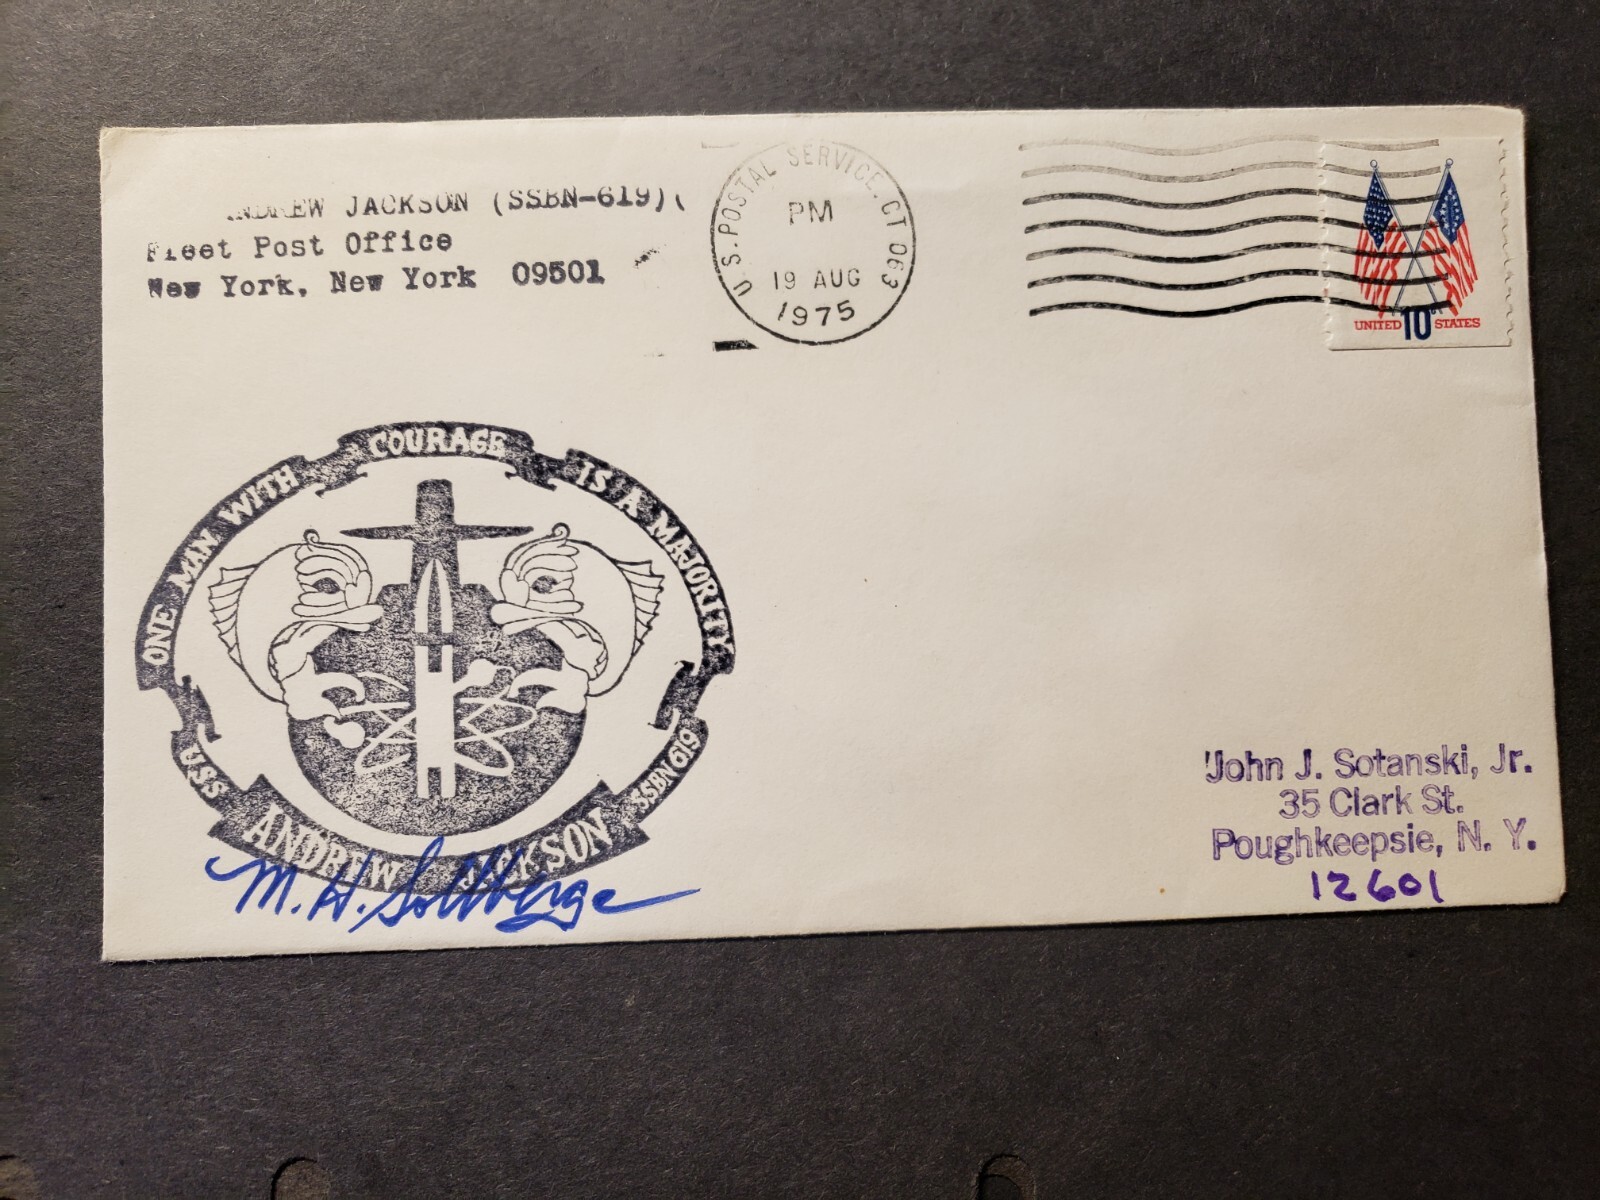 ANDREW JACKSON (SSBN-619)(
Fleet Post Office
New York, New York 09501
U.S. POSTAL SERVICE, CT 063
PM
19 AUG
1975
UNITED 10 STATES
ONE MAN WITH COURAGE IS A MAJORITY
USS ANDREW JACKSON SSBN 619
M. H.
John J. Sotanski, Jr.
35 Clark St.
Poughkeepsie, N. Y.
12601